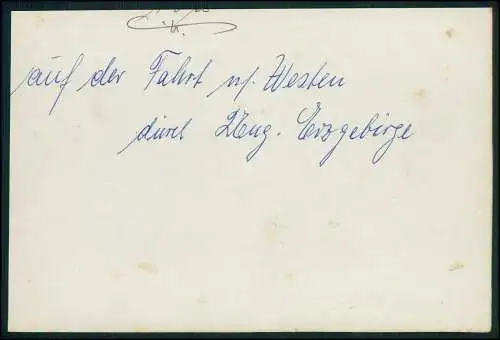 auf der Fahrt n/. Westen
durch Ung. Erzgebirge